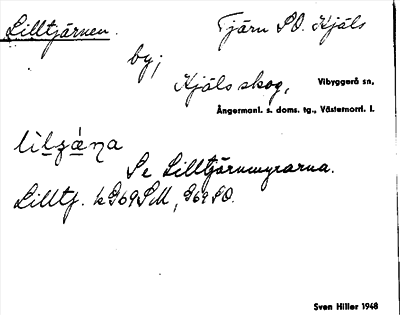 Lilltjärnen. Tjärn SO. Kjäls
by;
Kjäls skog, Vibyggerå sn,
Ångermanl. s. doms. tg., Västernorrl. l.
Se Lilltjärnmyrarna.
Lilltj. k G69SM, G69SO.
Sven Hiller 1948